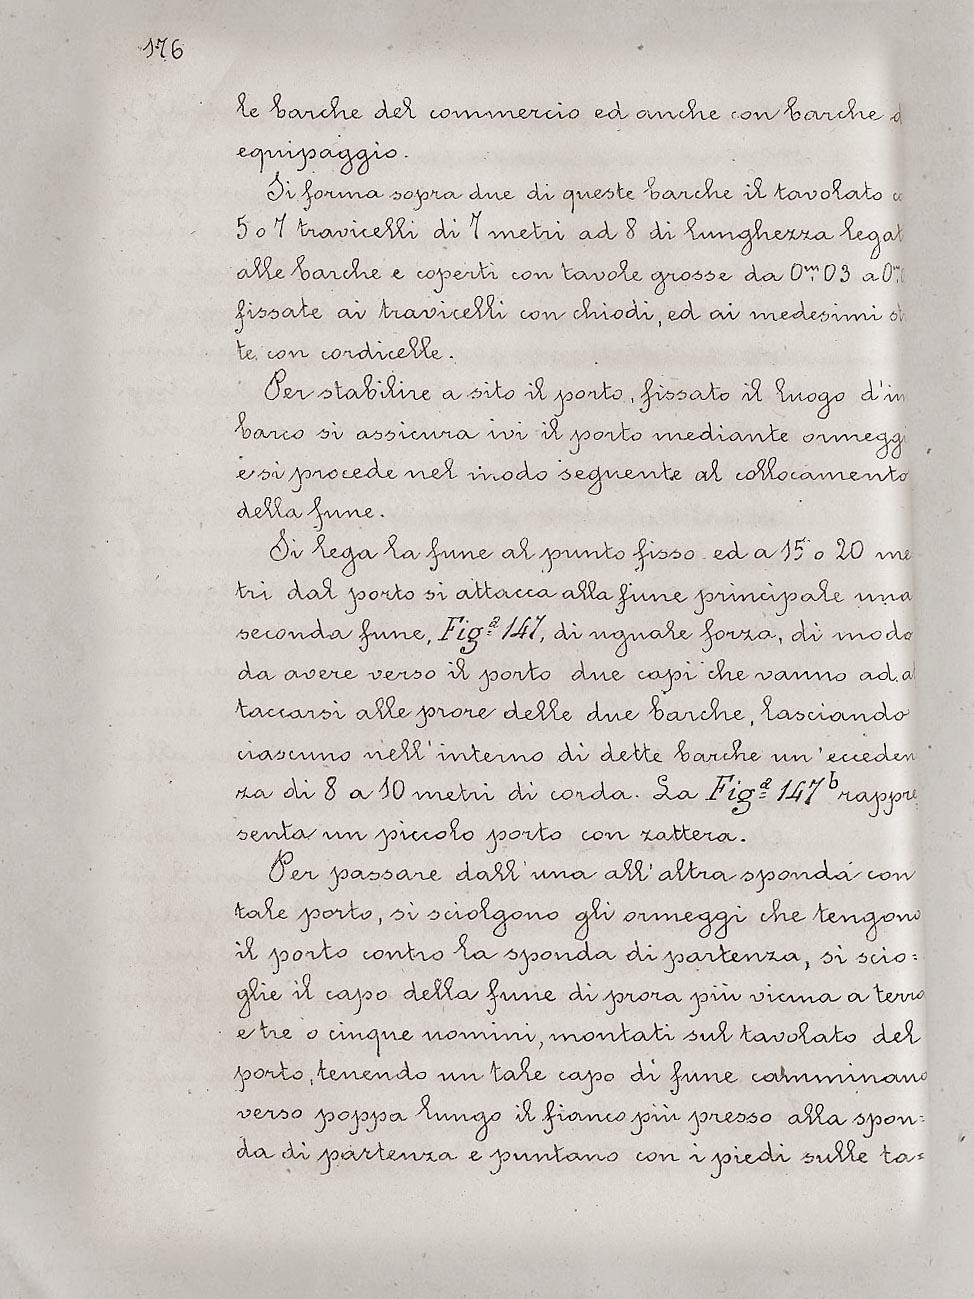 176
le barche del commercio ed anche con barche d
equipaggio.
Si forma sopra due di queste barche il tavolato
5 o 7 travicelli di 7 metri ad 8 di lunghezza legat
alle barche e coperti con tavole grosse da 0,ᵐ03 a 0,ᵐ
fissate ai travicelli con chiodi, ed ai medesimi
te con cordicelle.
Per stabilire a sito il porto, fissato il luogo d'im
barco si assicura ivi il porto mediante ormeggi
e si procede nel modo seguente al collocamento
della fune.
Si lega la fune al punto fisso ed a 15 o 20 me
tri dal porto si attacca alla fune principale una
seconda fune, Figᵃ 147, di uguale forza, di modo
da avere verso il porto due capi che vanno ad at
taccarsi alle prore delle due barche, lasciando
ciascuno nell'interno di dette barche un'ecceden
za di 8 a 10 metri di corda. La Figᵃ 147ᵇ rappre
senta un piccolo porto con zattera.
Per passare dall'una all'altra sponda con
tale porto, si sciolgono gli ormeggi che tengono
il porto contro la sponda di partenza, si scio=
glie il capo della fune di prora più vicina a terra
e tre o cinque uomini, montati sul tavolato del
porto, tenendo un tale capo di fune camminano
verso poppa lungo il fianco più presso alla spon=
da di partenza e puntano con i piedi sulle ta=